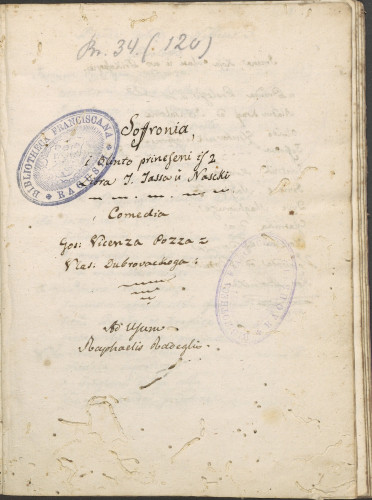 Br. 34. (. 120)
BIBLIOTHECA FRANCISCANA
RAGUSII
Soffronia,
i Olinto prineseni is 2
Tassa u Naschi
Comedia
Gos: Vicenza Pozza z
Vlas: Dubrovackoga:
Ad Usum
Raphaelis Radeglia